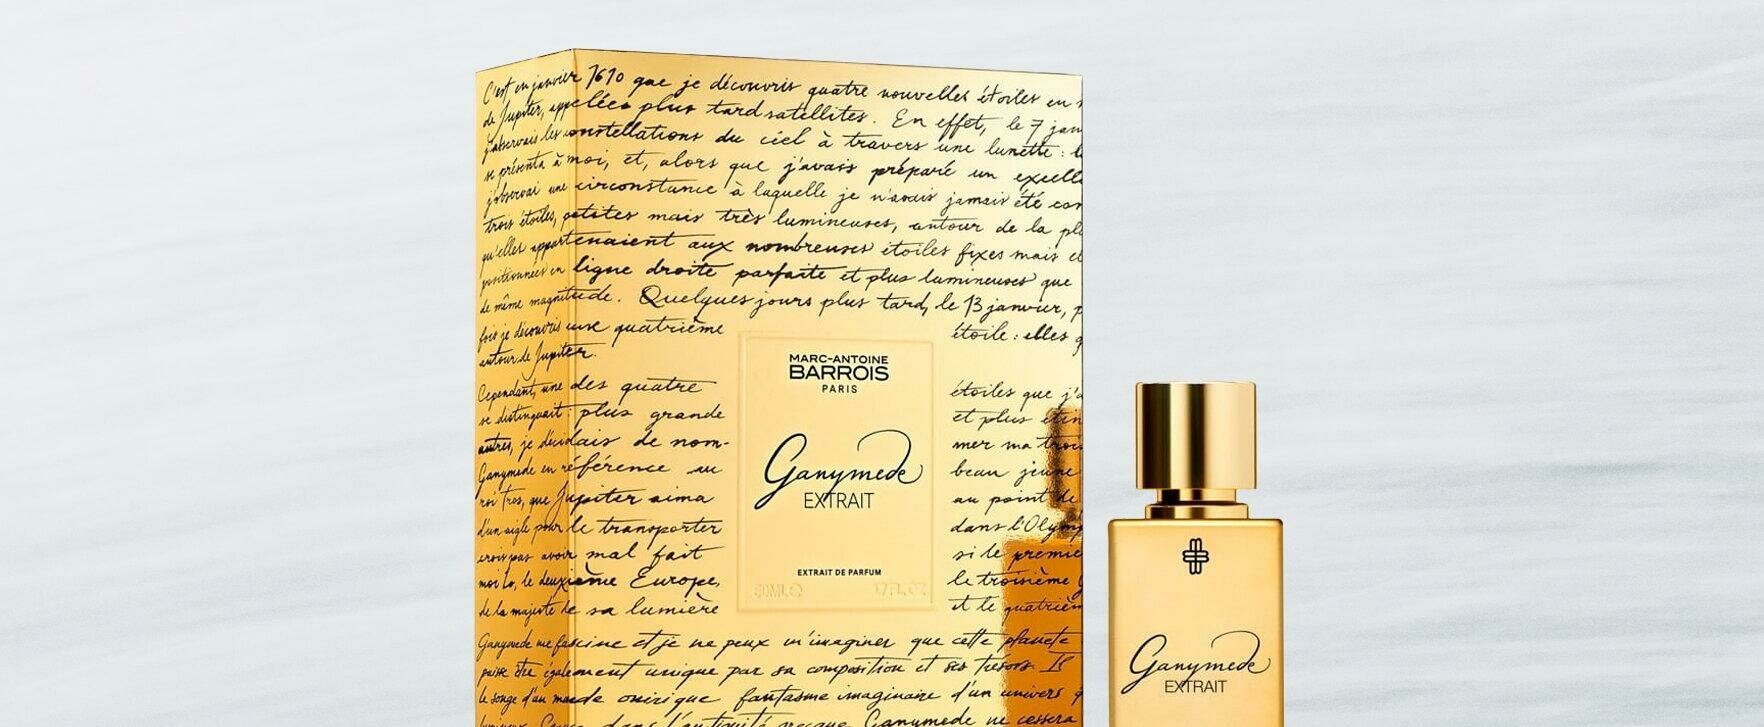 C'est en janvier 1610 que je découvris quatre nouvelles étoiles en
de Jupiter, appelées plus tard satellites. En effet, le 7 jan
j'observais les constellations du ciel à travers une lunette : l
se présenta à moi, et, alors que j'avais préparé un excell
j'observai une circonstance à laquelle je n'avais jamais été con
trois étoiles, petites mais très lumineuses, autour de la pl
qu'elles appartenaient aux nombreuses étoiles fixes mais e
positionnées en ligne droite parfaite et plus lumineuses que
de même magnitude. Quelques jours plus tard, le 13 janvier, p
fois je découvris une quatrième étoile : elles
autour de Jupiter.
Cependant, une des quatre étoiles que j'a
se distinguait : plus grande et plus étin
autres, je décidais de nom- mer ma trois
Ganymede en référence au beau jeune
roi Tros, que Jupiter aima au point de
d'un aigle pour le transporter dans l'Olymp
crois pas avoir mal fait si le premie
moi Io, le deuxième Europe, le troisième G
de la majesté de sa lumière et le quatrièm
Ganymede me fascine et je ne peux m'imaginer que cette planete
puisse être également unique par sa composition et ses trésors. Il
le songe d'un monde onirique fantasme imaginaire d'un univers q
dans l'antiquité Ganymede ne cessera
MARC-ANTOINE
BARROIS
PARIS
Ganymede
EXTRAIT
EXTRAIT DE PARFUM
50ML 1.7FL.OZ
Ganymede
EXTRAIT